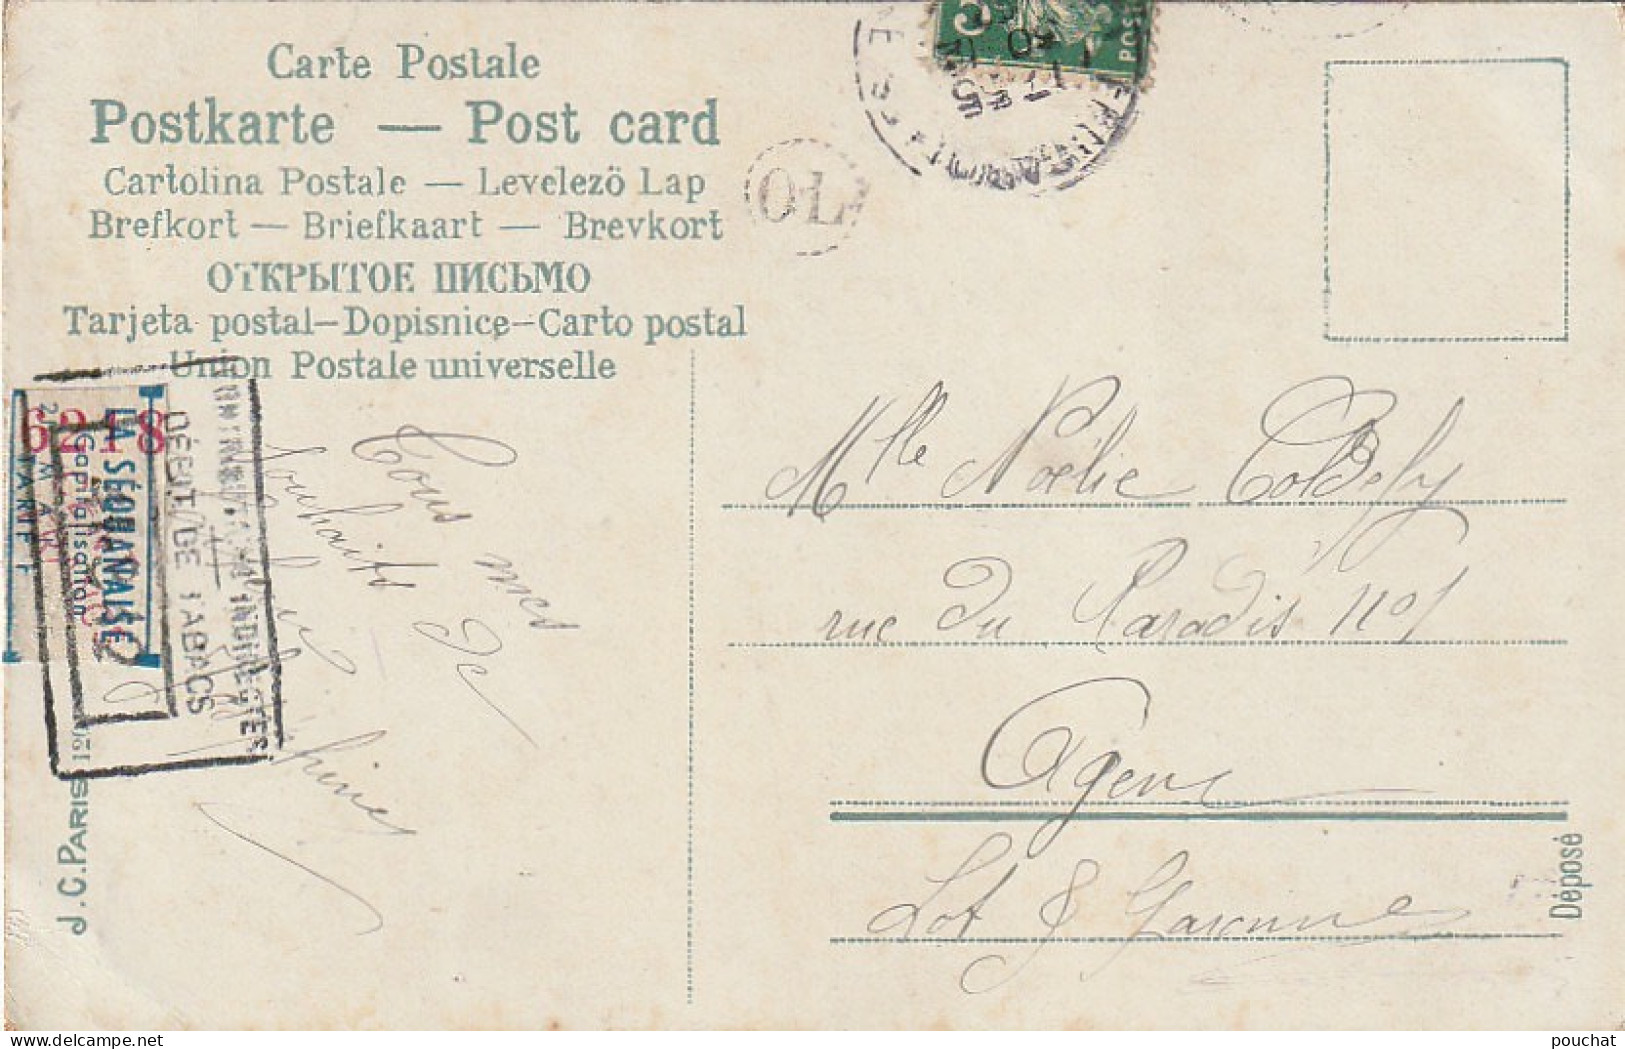 Carte Postale
Postkarte — Post card
Cartolina Postale — Levelezö Lap
Brefkort — Briefkaart — Brevkort
ОТКРЫТОЕ ПИСЬМО
Tarjeta postal—Dopisnice—Carto postal
Union Postale universelle
OL
5
POS
6218
LA SÉQUANAISE
Capitalisation
TARIF
INDIRECTES
DÉBIT DE TABACS
Tous mes
souhaits de
J. C. PARIS 120
Mlle Noélie Coldefy
rue du Paradis no 1
Agen
Lot & Garonne
Déposé
pouchat